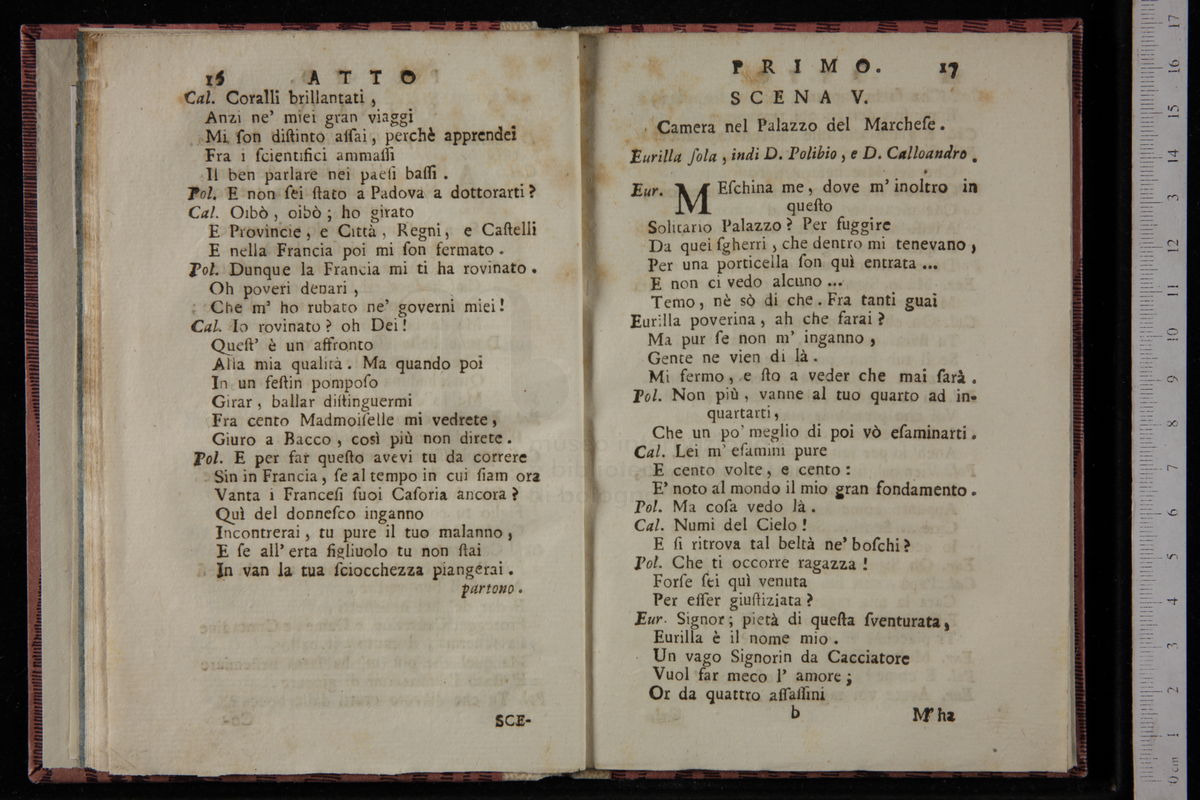 16 ATTO
Cal. Coralli brillantati,
Anzi ne' miei gran viaggi
Mi ſon diſtinto aſſai, perchè apprendei
Fra i ſcientifici ammaſſi
Il ben parlare nei paeſi baſſi.
Pol. E non ſei ſtato a Padova a dottorarti?
Cal. Oibò, oibò; ho girato
E Provincie, e Città, Regni, e Caſtelli
E nella Francia poi mi ſon fermato.
Pol. Dunque la Francia mi ti ha rovinato.
Oh poveri denari,
Che m' ho rubato ne' governi miei!
Cal. Io rovinato? oh Dei!
Queſt' è un affronto
Alla mia qualità. Ma quando poi
In un feſtin pompoſo
Girar, ballar diſtinguermi
Fra cento Madmoiſelle mi vedrete,
Giuro a Bacco, così più non direte.
Pol. E per far queſto avevi tu da correre
Sin in Francia, ſe al tempo in cui ſiam ora
Vanta i Franceſi ſuoi Caſoria ancora?
Quì del donneſco inganno
Incontrerai, tu pure il tuo malanno,
E ſe all' erta figliuolo tu non ſtai
In van la tua ſciocchezza piangerai.
partono.
SCE-
PRIMO. 17
SCENA V.
Camera nel Palazzo del Marcheſe.
Eurilla ſola, indi D. Polibio, e D. Calloandro.
Eur. MEſchina me, dove m' inoltro in
queſto
Solitario Palazzo? Per fuggire
Da quei ſgherri, che dentro mi tenevano,
Per una porticella ſon quì entrata ...
E non ci vedo alcuno ...
Temo, nè sò di che. Fra tanti guai
Eurilla poverina, ah che farai?
Ma pur ſe non m' inganno,
Gente ne vien di là.
Mi fermo, e ſto a veder che mai ſarà.
Pol. Non più, vanne al tuo quarto ad in-
quartarti,
Che un po' meglio di poi vò eſaminarti.
Cal. Lei m' eſamini pure
E cento volte, e cento:
E' noto al mondo il mio gran fondamento.
Pol. Ma coſa vedo là.
Cal. Numi del Cielo!
E ſi ritrova tal beltà ne' boſchi?
Pol. Che ti occorre ragazza!
Forſe ſei quì venuta
Per eſſer giuſtiziata?
Eur. Signor; pietà di queſta ſventurata,
Eurilla è il nome mio.
Un vago Signorin da Cacciatore
Vuol far meco l' amore;
Or da quattro aſſaſſini
b M' ha